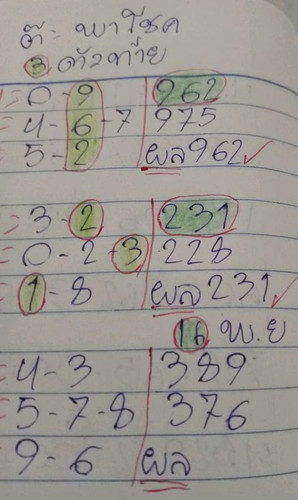 ต๊ะ พาโชค
3 ตัวท้าย
= 0 - 9 962
= 4 - 6 - 7 975
= 5 - 2 ผล 962 ✓
= 3 - 2 231
= 0 - 2 - 3 228
= 1 - 8 ผล 231 ✓
16 พ.ย
= 4 - 3 389
= 5 - 7 - 8 376
= 9 - 6 ผล